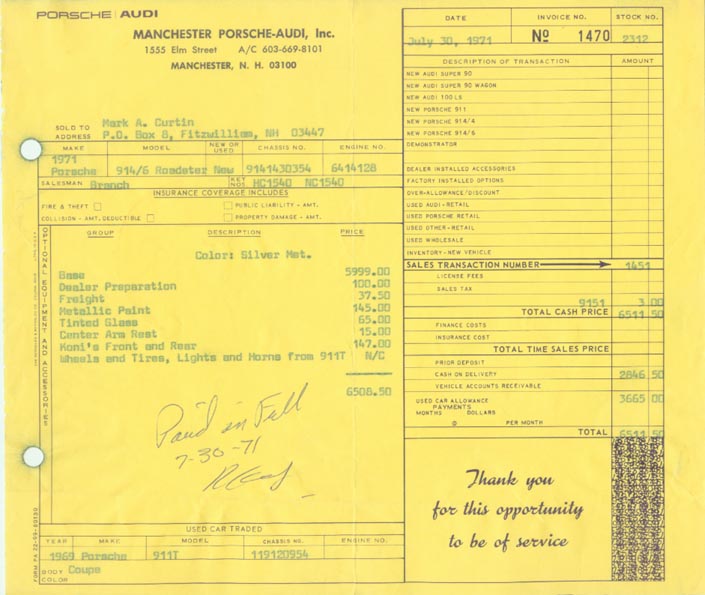 PORSCHE AUDI
MANCHESTER PORSCHE-AUDI, Inc.
1555 Elm Street A/C 603-669-8101
MANCHESTER, N. H. 03100
DATE INVOICE NO. STOCK NO.
July 30, 1971 No 1470 2312
DESCRIPTION OF TRANSACTION AMOUNT
NEW AUDI SUPER 90
NEW AUDI SUPER 90 WAGON
NEW AUDI 100 LS
NEW PORSCHE 911
NEW PORSCHE 914/4
NEW PORSCHE 914/6
DEMONSTRATOR
DEALER INSTALLED ACCESSORIES
FACTORY INSTALLED OPTIONS
OVER-ALLOWANCE/DISCOUNT
USED AUDI-RETAIL
USED PORSCHE RETAIL
USED OTHER-RETAIL
USED WHOLESALE
INVENTORY-NEW VEHICLE
SALES TRANSACTION NUMBER 1451
LICENSE FEES
SALES TAX
9151 3.00
TOTAL CASH PRICE 6511.50
FINANCE COSTS
INSURANCE COST
TOTAL TIME SALES PRICE
PRIOR DEPOSIT
CASH ON DELIVERY 2846 50
VEHICLE ACCOUNTS RECEIVABLE
USED CAR ALLOWANCE 3665 00
PAYMENTS
MONTHS DOLLARS
@ PER MONTH
TOTAL 6511 50
SOLD TO Mark A. Curtin
ADDRESS P.O. Box 8, Fitzwilliam, NH 03447
MAKE MODEL NEW OR USED CHASSIS NO. ENGINE NO.
1971
Porsche 914/6 Roadster New 9141430354 6414128
SALESMAN Branch KEY NOS. HC1540 NC1540
INSURANCE COVERAGE INCLUDES
FIRE & THEFT PUBLIC LIABILITY - AMT.
COLLISION - AMT. DEDUCTIBLE PROPERTY DAMAGE - AMT.
OPTIONAL EQUIPMENT AND ACCESSORIES
GROUP DESCRIPTION PRICE
Color: Silver Met.
Base 5999.00
Dealer Preparation 100.00
Freight 37.50
Metallic Paint 145.00
Tinted Glass 65.00
Center Arm Rest 15.00
Koni's Front and Rear 147.00
Wheels and Tires, Lights and Horns from 911T N/C
6508.50
Paid in Full
7-30-71
USED CAR TRADED
YEAR MAKE MODEL CHASSIS NO. ENGINE NO.
1969 Porsche 911T 119120954
BODY Coupe
COLOR
Thank you
for this opportunity
to be of service